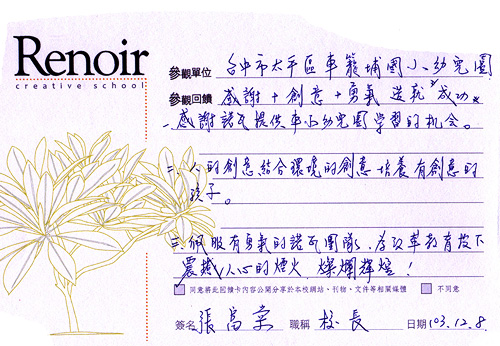 Renoir
creative school
參觀單位 台中市太平區車籠埔國小幼兒園
參觀回饋 感謝+創意+勇氣 造就 成功。
一、感謝諾瓦提供車小幼兒園學習的机会。
二、人的創意結合環境的創意培養有創意的
孩子。
三、佩服有勇氣的諾瓦團隊,為改革教育投下
震撼人心的煙火 燦爛輝煌!
同意將此回饋卡內容公開分享於本校網站、刊物、文件等相關媒體 不同意
簽名 張 職稱 校長 日期 103.12.8.